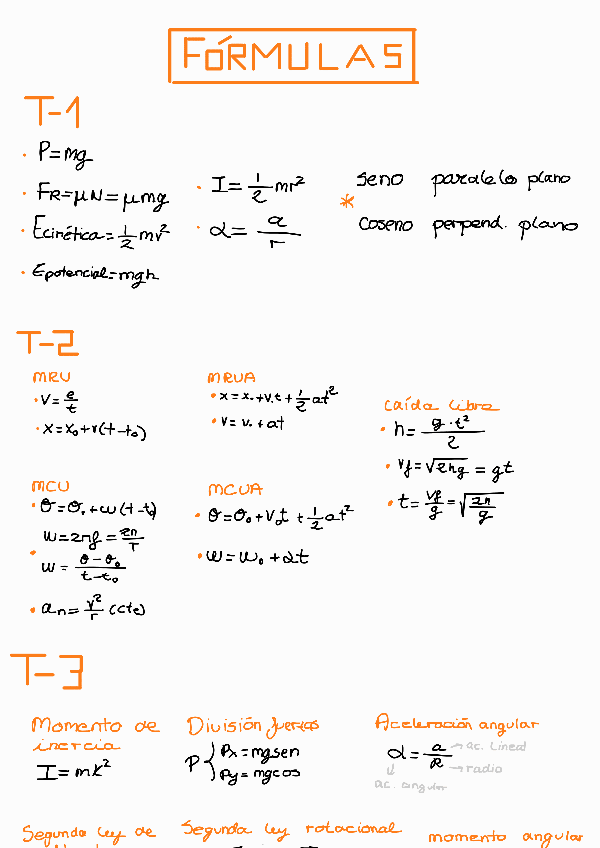 FÓRMULAS
T-1
• P=mg
• FR=μN=μmg
• Ecinética=1/2 mv²
• Epotencial=mgh
• I=1/2 mr²
• α=a/r
* seno paralelo plano
coseno perpend. plano
T-2
MRU
• v=e/t
• x=x₀+v(t-t₀)
MRUA
• x=x₀+v₀t+1/2 at²
• v=v₀+at
caída libre
• h=g·t²/2
• vf=√2hg=gt
• t=vf/g=√2h/g
MCU
• θ=θ₀+ω(t-t₀)
ω=2πf=2π/T
• ω=θ-θ₀/t-t₀
• an=v²/r (cte)
MCUA
• θ=θ₀+v₀t+1/2 at²
• ω=ω₀+αt
T-3
Momento de
inercia
I=mk²
División fuerzas
P { Px=mgsen
Py=mgcos
Aceleración angular
α=a/R → ac. lineal
→ radio
↓
ac. angular
Segunda ley de
Segunda ley rotacional
momento angular